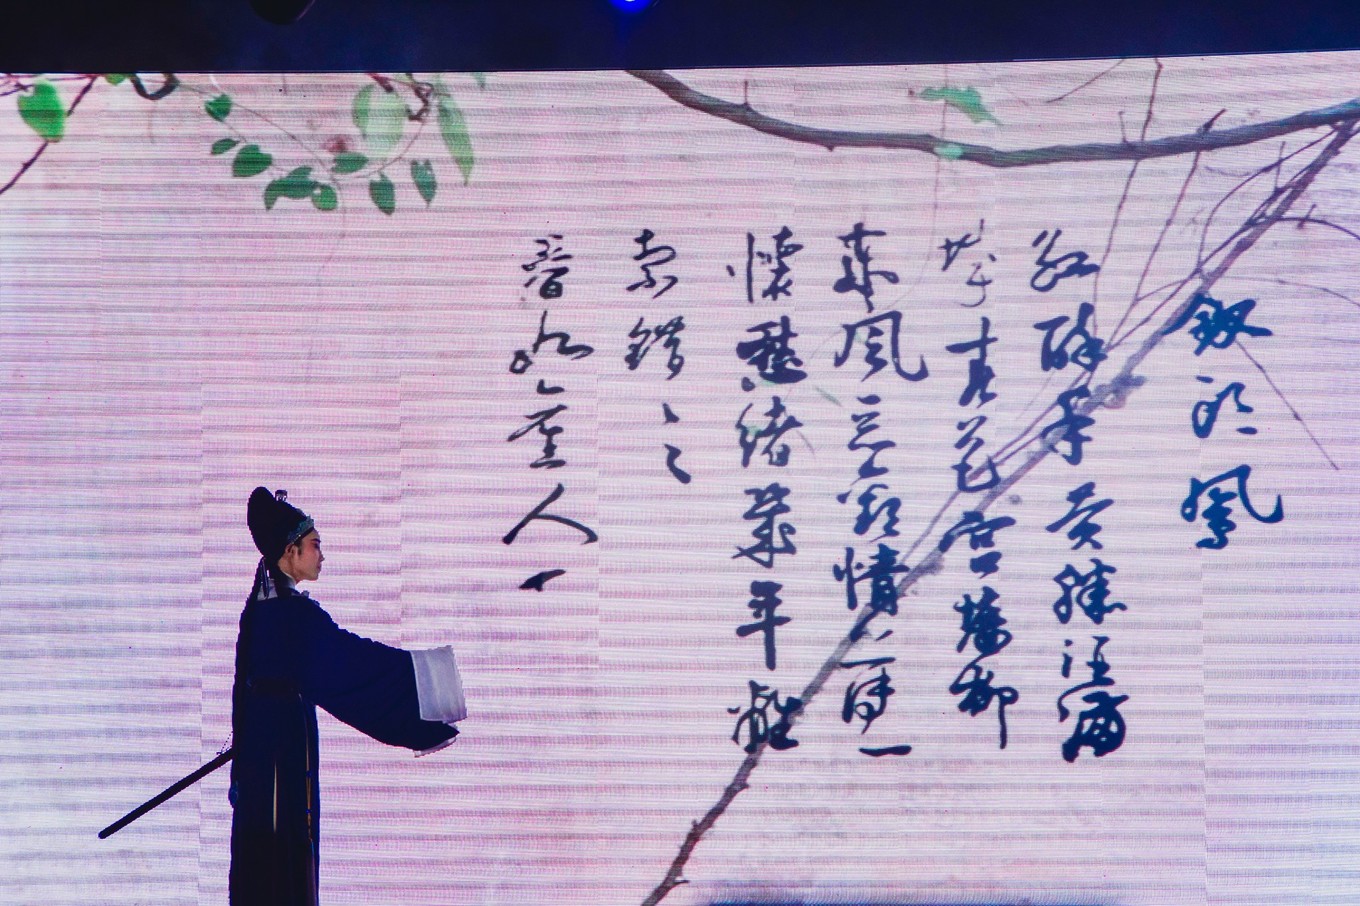 釵頭鳳
紅酥手黃縢酒滿
城春色宮牆柳
東風惡歡情薄一
懷愁緒幾年離
索錯々々
春如舊人